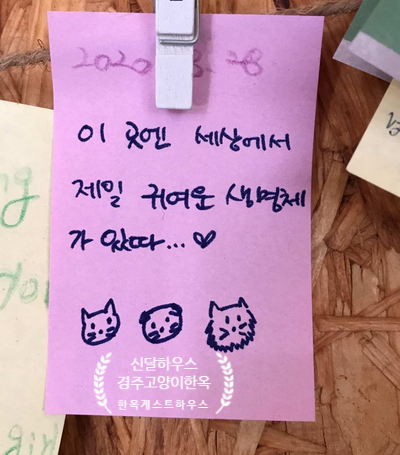 2020. 3. 28
이 곳엔 세상에서
제일 귀여운 생명체
가 있따... ♡
신달하우스
경주고양이한옥
한옥게스트하우스